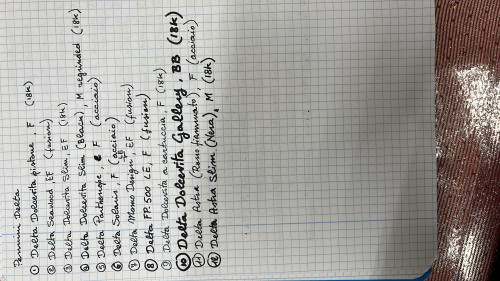 Pennini Delta
① Delta Dolcevita pistone, F (18k)
② Delta Seawood EF (fusion)
③ Delta Dolcevita Slim, EF (18k)
④ Delta Dolcevita Slim (Black), M regrinded (18k)
⑤ Delta Partenope, F (acciaio)
⑥ Delta Solaris, F (acciaio)
EB
⑦ Delta Momo Design, EF (fusion)
⑧ Delta FP. 500 LE, F (fusion)
⑨ Delta Dolcevita a cartuccia, F (18k)
⑩ Delta Dolcevita Gallery, BB (18k)
⑪ Delta Astra (Rosso fiammato), F (acciaio)
⑫ Delta Astra Slim (Nera), M (18k)